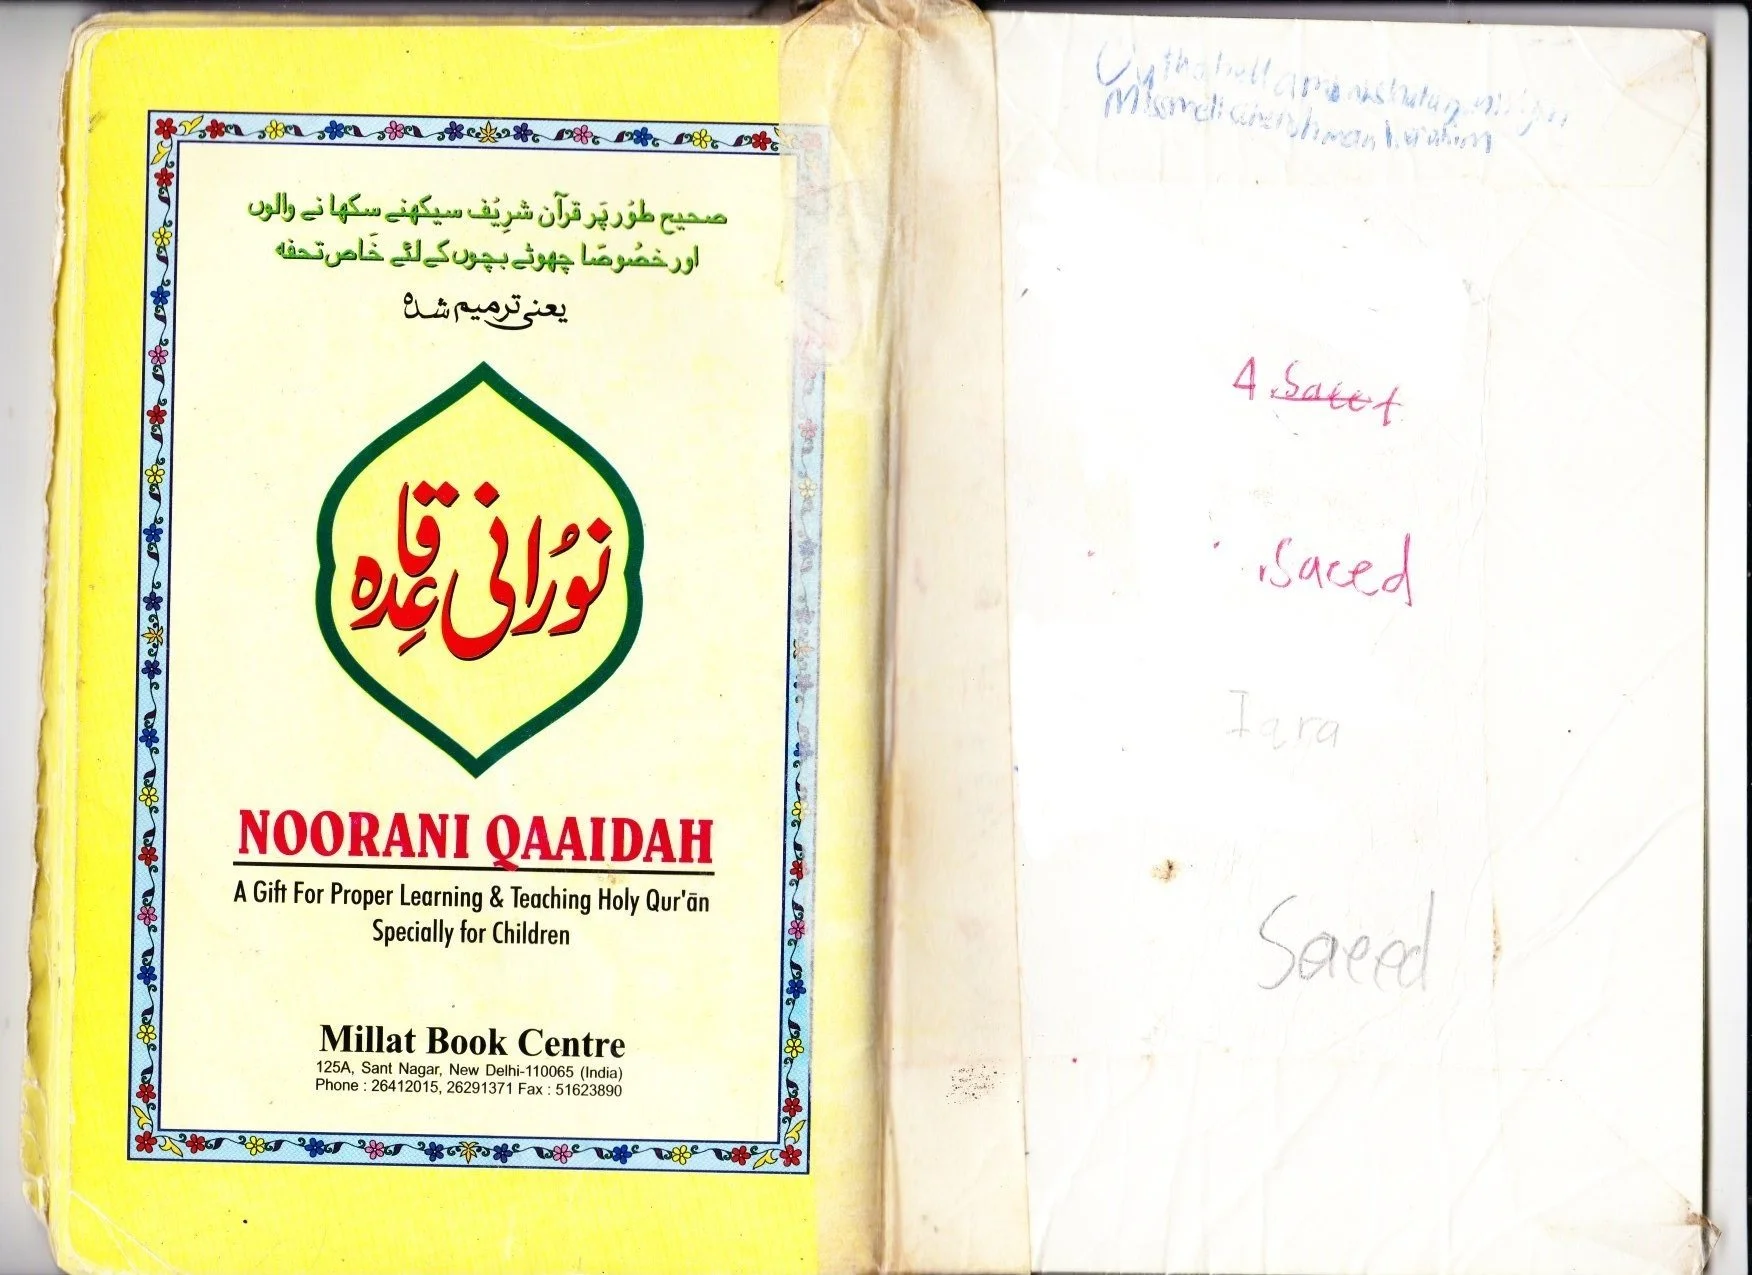 صحیح طوُر پَر قرآن شرِیُف سیکھنے سکھانے والوں
اور خصُوصًا چھوٹے بچّوں کے لئے خَاص تحفه
یعنی ترمیم شدہ
نوُرانی قاعِدہ
NOORANI QAAIDAH
A Gift For Proper Learning & Teaching Holy Qur'ān
Specially for Children
Millat Book Centre
125A, Sant Nagar, New Delhi-110065 (India)
Phone : 26412015, 26291371 Fax : 51623890
Saeed
Iqra
Saeed